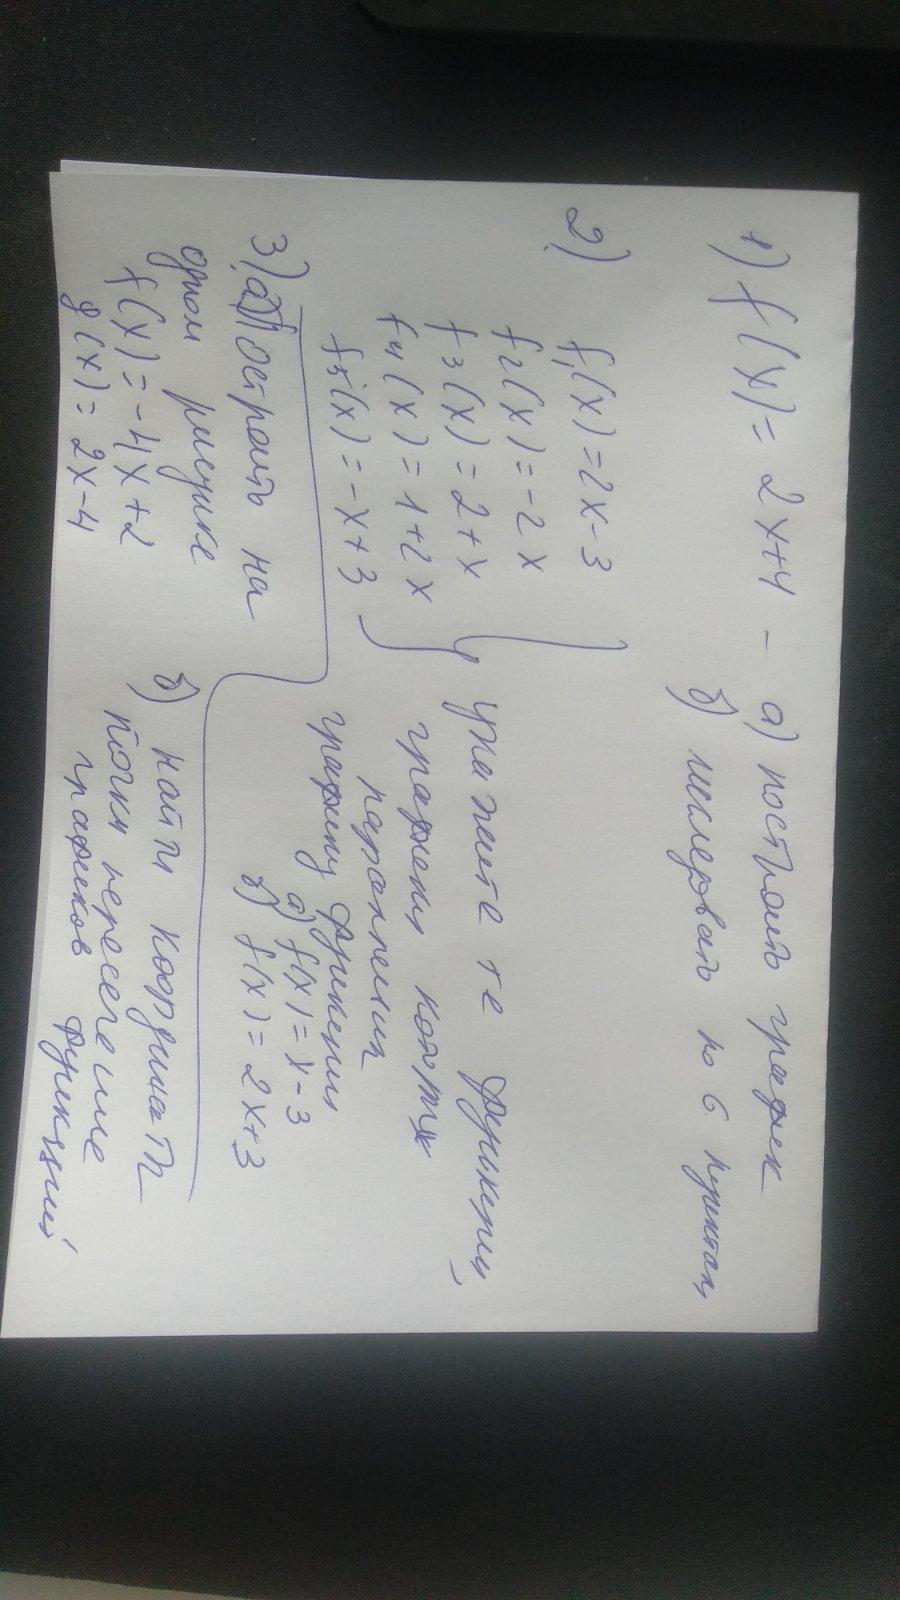 1) f(x) = 2x+4 – а) построить график
б) исследовать по 6 пунктам
2) f₁(x) = 2x-3
f2(x) = -2x
f3(x) = 2+x
f4(x) = 1+2x
f5(x) = -x+3
укажите те функции,
графики котор
параллельн
графику функции
а) f(x) = x-3
б) f(x) = 2x+3
3) а) Построить на
одном рисунке
f(x) = -4x+2
g(x) = 2x-4
б) найти координаты
точки пересечение
графиков функций